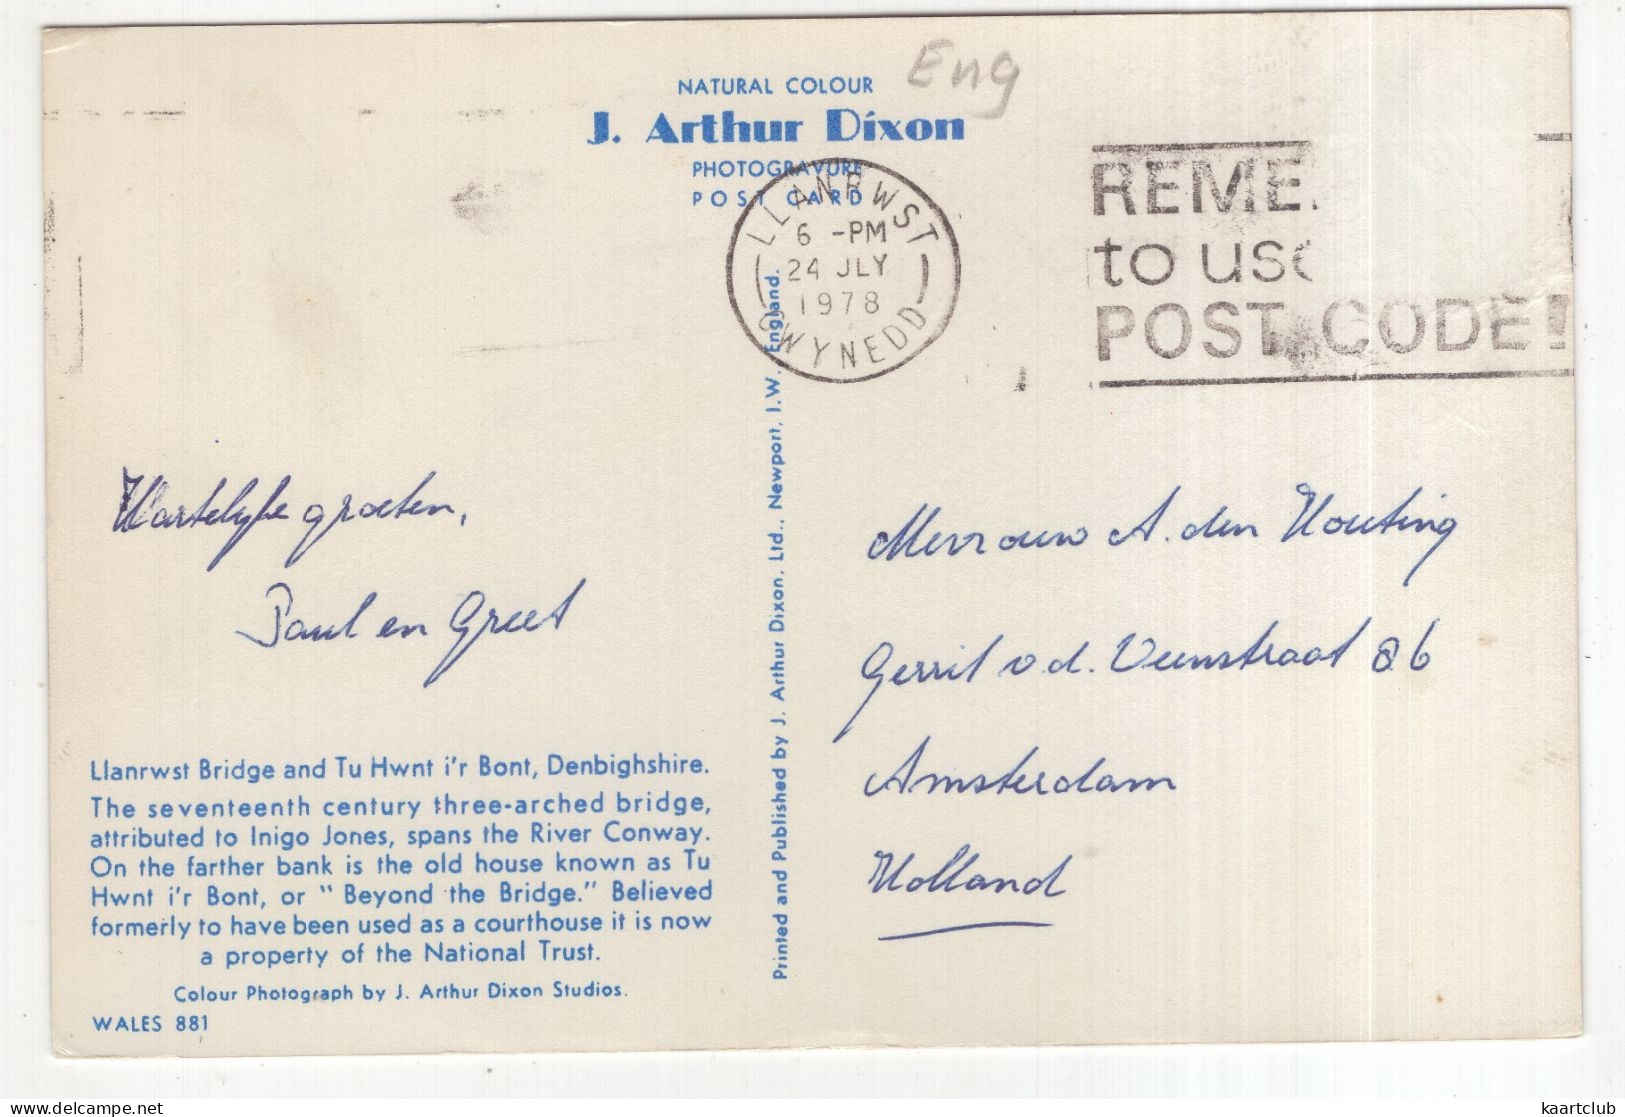 Eng
NATURAL COLOUR
J. Arthur Dixon
PHOTOGRAVURE
POST CARD
LLANRWST
6 -PM
24 JLY
1978
GWYNEDD
REME
to use
POST CODE!
Hartelyke groeten,
Paul en Greet
Llanrwst Bridge and Tu Hwnt i'r Bont, Denbighshire.
The seventeenth century three-arched bridge,
attributed to Inigo Jones, spans the River Conway.
On the farther bank is the old house known as Tu
Hwnt i'r Bont, or "Beyond the Bridge." Believed
formerly to have been used as a courthouse it is now
a property of the National Trust.
Colour Photograph by J. Arthur Dixon Studios.
WALES 881
Printed and Published by J. Arthur Dixon, Ltd., Newport, I.W. England.
Mevrouw A. den Houting
Gerrit v.d. Veenstraat 86
Amsterdam
Holland
kaartclub